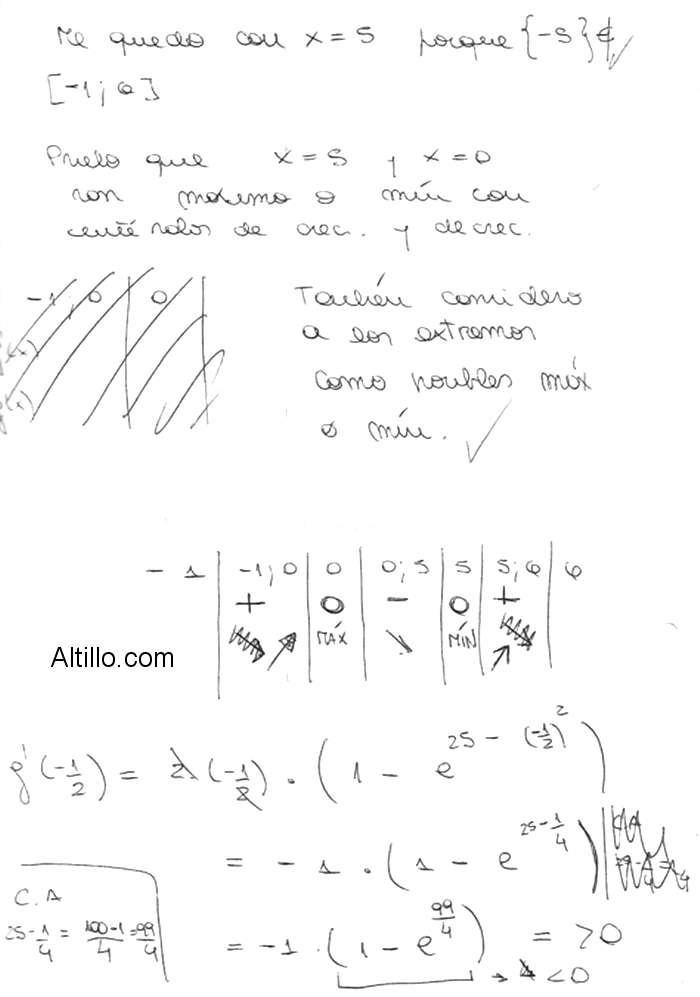 Me quedo con x = 5 porque {-5} ∉
[-1; 6]
Pruebo que x = 5 y x = 0
son máximo o mín con
intérvalos de crec. y decrec.
-1; 0 | 0
También considero
a los extremos
como posibles máx
o mín.
-1 | -1; 0 | 0 | 0; 5 | 5 | 5; 6 | 6
+ | 0 | - | 0 | +
↗ | MÁX | ↘ | MÍN | ↗
Altillo.com
g'(-1/2) = 2(-1/2) · (1 - e^(25 - (-1/2)^2))
= -1 · (1 - e^(25 - 1/4))
C.A
25 - 1/4 = (100 - 1)/4 = 99/4
= -1 · (1 - e^(99/4)) = > 0
→ < 0